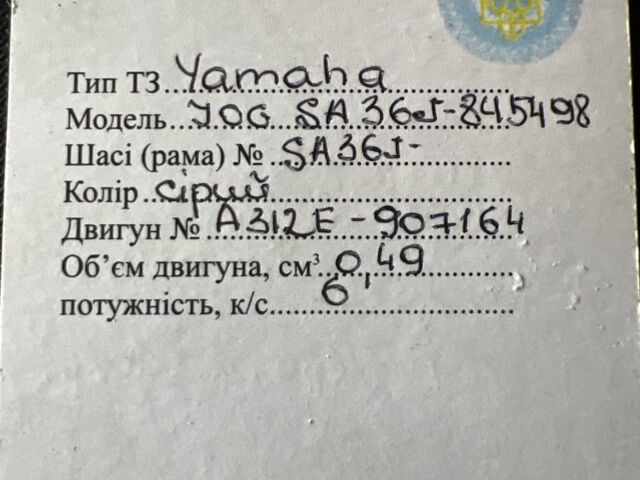 Тип ТЗ Yamaha
Модель JOG SA36J-845498
Шасі (рама) № SA36J-
Колір сірий
Двигун № A312E-907164
Об’єм двигуна, см³ 0,49
потужність, к/с 6